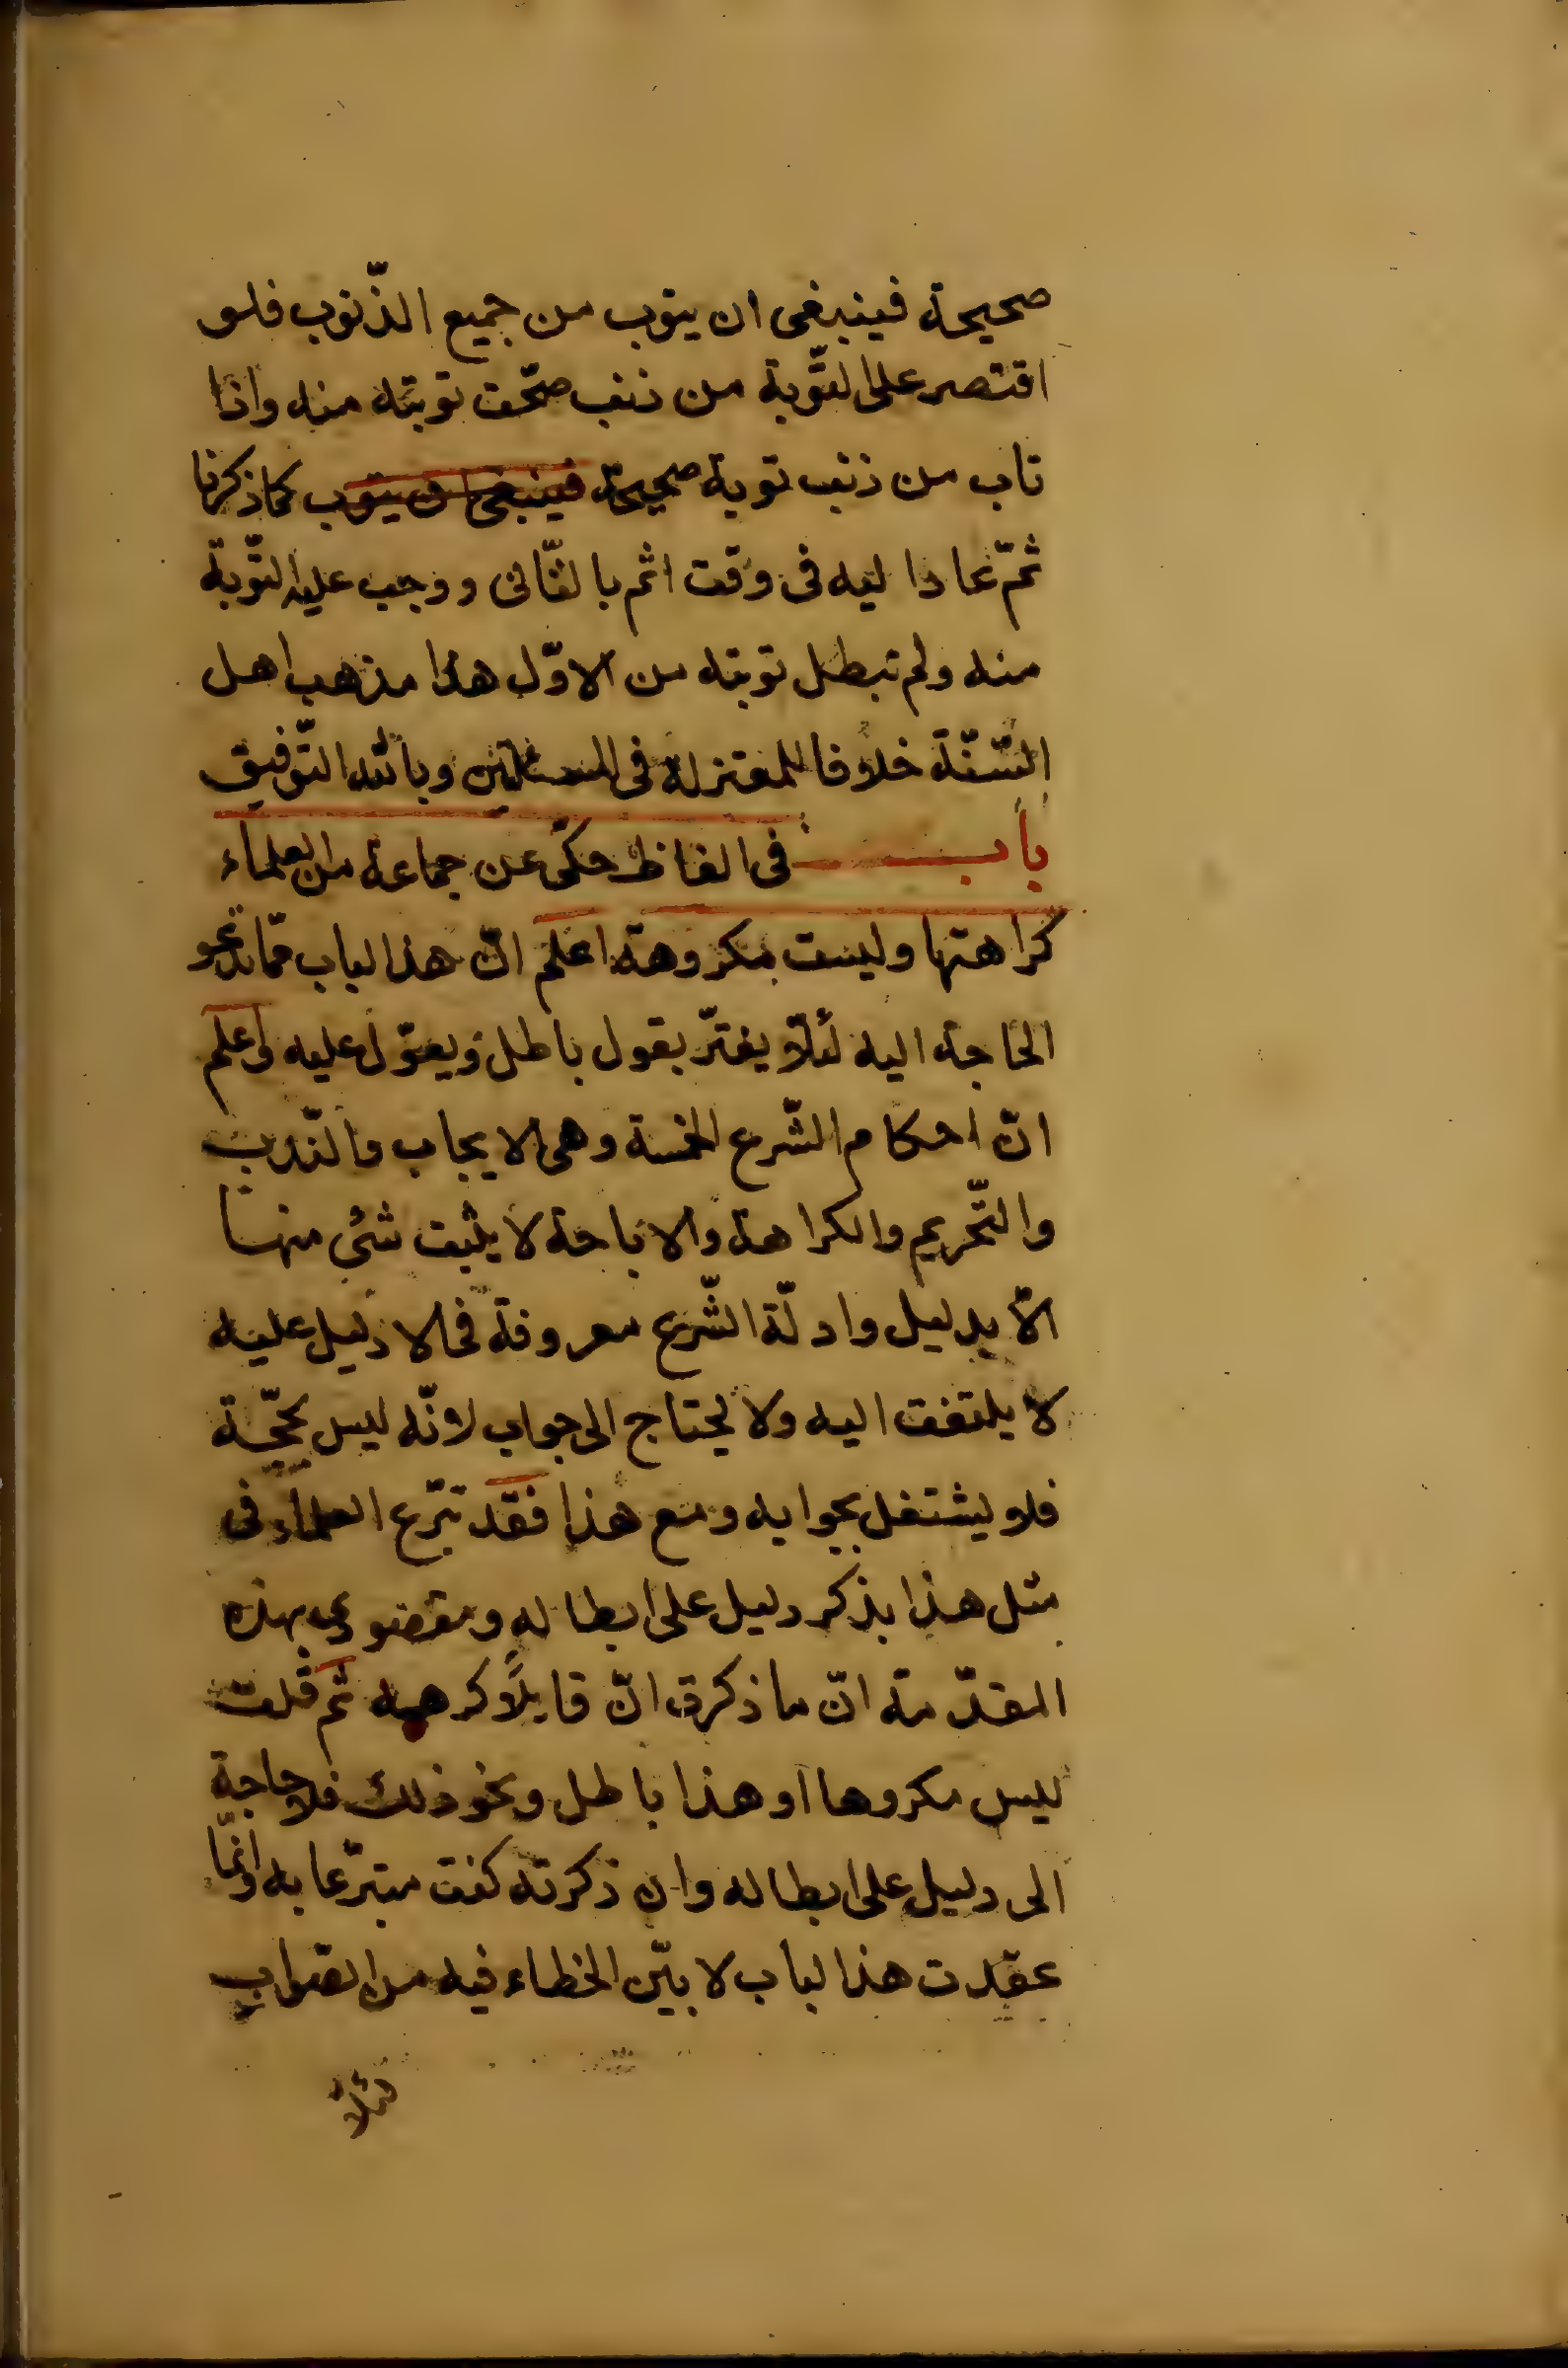 صحيحة فينبغى ان يتوب من جميع الذّنوب فلو
اقتصر على التّوبة من ذنب صحّت توبته منه واذا
تاب من ذنب توبة صحيحة فينبغى ان يتوب كما ذكرنا
ثمّ عاد اليه فى وقت اثم بالثّانى ووجب عليه التّوبة
منه ولم تبطل توبته من الاوّل هذا مذهب اهل
السّنّة خلافا للمعتزلة فى المسئلتين وبالله التّوفيق
باب فى الفاظ حكى عن جماعة من العلماء
كراهتها وليست مكروهة اعلم انّ هذا الباب ممّا تدعو
الحاجة اليه لئلّا يغترّ بقول باطل ويعوّل عليه واعلم
انّ احكام الشّرع الخمسة وهى الايجاب والنّدب
والتّحريم والكراهة والاباحة لا يثبت شئ منها
الّا بدليل وادلّة الشّرع معروفة فما لا دليل عليه
لا يلتفت اليه ولا يحتاج الى جواب لانّه ليس بحجّة
فلا يشتغل بجوابه ومع هذا فقد تبرّع العلماء فى
مثل هذا بذكر دليل على ابطاله ومقصودى بهذه
المقدّمة انّ ما ذكرت انّ قايلًا كرهه ثم قلت
ليس مكروها او هذا باطل ونحو ذلك فلا حاجة
الى دليل على ابطاله وان ذكرته كنت متبرّعا به وانّما
عقدت هذا الباب لابيّن الخطاء فيه من الصّواب
لئلّا